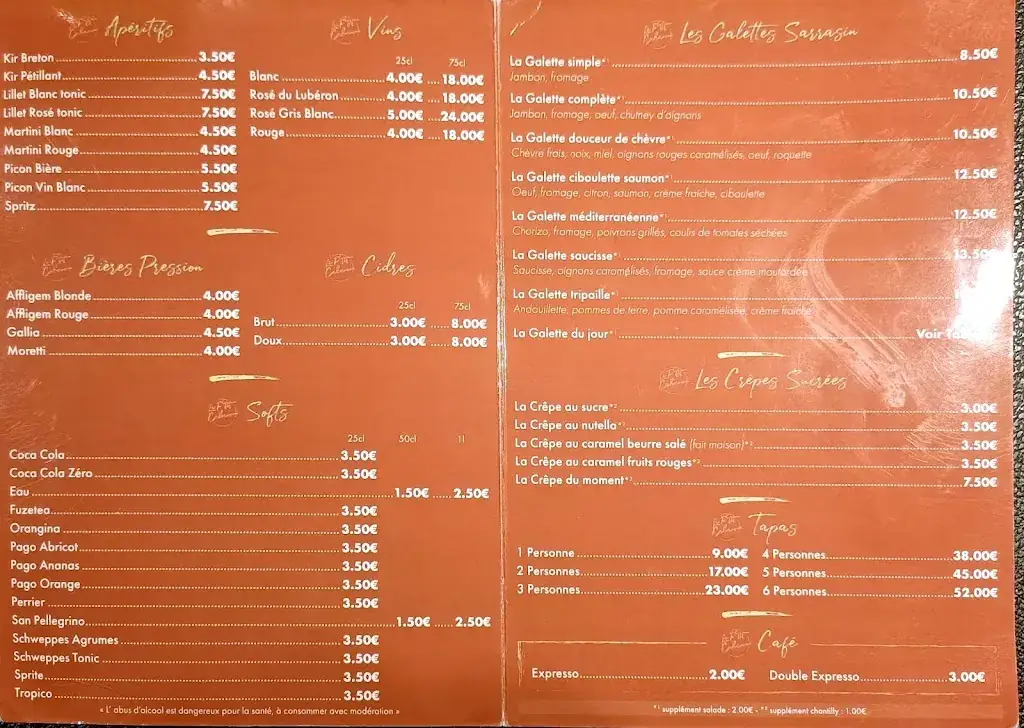 Apéritifs
Kir Breton 3.50€
Kir Pétillant 4.50€
Lillet Blanc tonic 7.50€
Lillet Rosé tonic 7.50€
Martini Blanc 4.50€
Martini Rouge 4.50€
Picon Bière 5.50€
Picon Vin Blanc 5.50€
Spritz 7.50€
Vins
25cl 75cl
Blanc 4.00€ 18.00€
Rosé du Lubéron 4.00€ 18.00€
Rosé Gris Blanc 5.00€ 24.00€
Rouge 4.00€ 18.00€
Bières Pression
Affligem Blonde 4.00€
Affligem Rouge 4.00€
Gallia 4.50€
Moretti 4.00€
Cidres
25cl 75cl
Brut 3.00€ 8.00€
Doux 3.00€ 8.00€
Softs
25cl 50cl 1l
Coca Cola 3.50€
Coca Cola Zéro 3.50€
Eau 1.50€ 2.50€
Fuzetea 3.50€
Orangina 3.50€
Pago Abricot 3.50€
Pago Ananas 3.50€
Pago Orange 3.50€
Perrier 3.50€
San Pellegrino 1.50€ 2.50€
Schweppes Agrumes 3.50€
Schweppes Tonic 3.50€
Sprite 3.50€
Tropico 3.50€
« L' abus d'alcool est dangereux pour la santé, à consommer avec modération »
Les Galettes Sarrasin
La Galette simple*¹ 8.50€
Jambon, fromage
La Galette complète*¹ 10.50€
Jambon, fromage, oeuf, chutney d'oignons
La Galette douceur de chèvre*¹ 10.50€
Chèvre frais, noix, miel, oignons rouges caramélisés, oeuf, roquette
La Galette ciboulette saumon*¹ 12.50€
Oeuf, fromage, citron, saumon, crème fraîche, ciboulette
La Galette méditerranéenne*¹ 12.50€
Chorizo, fromage, poivrons grillés, coulis de tomates séchées
La Galette saucisse*¹ 13.50€
Saucisse, oignons caramélisés, fromage, sauce crème moutardée
La Galette tripaille*¹
Andouillette, pommes de terre, pomme caramélisée, crème fraîche
La Galette du jour*¹ Voir
Les Crêpes Sucrées
La Crêpe au sucre*² 3.00€
La Crêpe au nutella*² 3.50€
La Crêpe au caramel beurre salé (fait maison)*² 3.50€
La Crêpe au caramel fruits rouges*² 3.50€
La Crêpe du moment*² 7.50€
Tapas
1 Personne 9.00€ 4 Personnes 38.00€
2 Personnes 17.00€ 5 Personnes 45.00€
3 Personnes 23.00€ 6 Personnes 52.00€
Café
Expresso 2.00€ Double Expresso 3.00€
*¹ supplément salade : 2.00€ - *² supplément chantilly : 1.00€